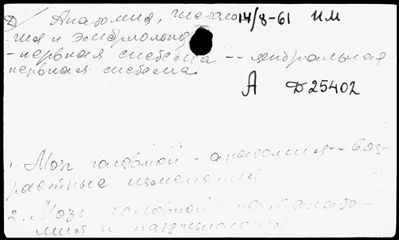 Д Анатомия, гистоло 14/8-61 ИМ
гия и эмбриология
- нервная система -- центральная
нервная система
А Д25402
1. Мозг головной - анатомия -- воз-
растные изменения
2. Мозг головной - патанато-
мия и